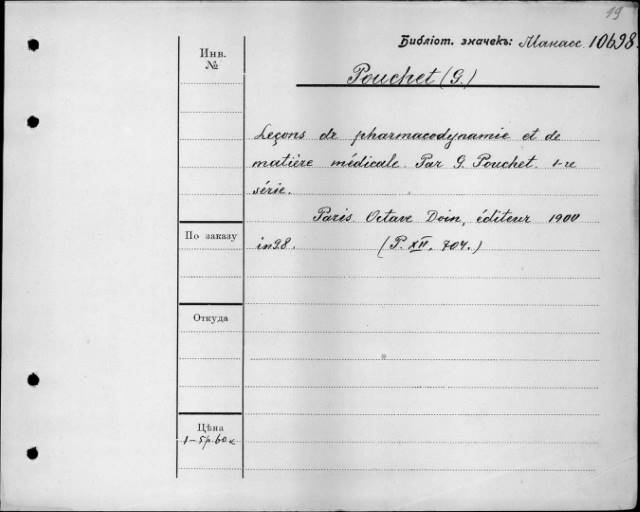 19
Библіот. значекъ: Манасс. 10698.
Инв.
№
Pouchet (G.)
Leçons de pharmacodynamie et de
matière médicale. Par G. Pouchet. 1-re
série.
Paris Octave Doin, éditeur 1900
По заказу
in 8. (P. XII. 704.)
Откуда
Цѣна
1-5р.60к